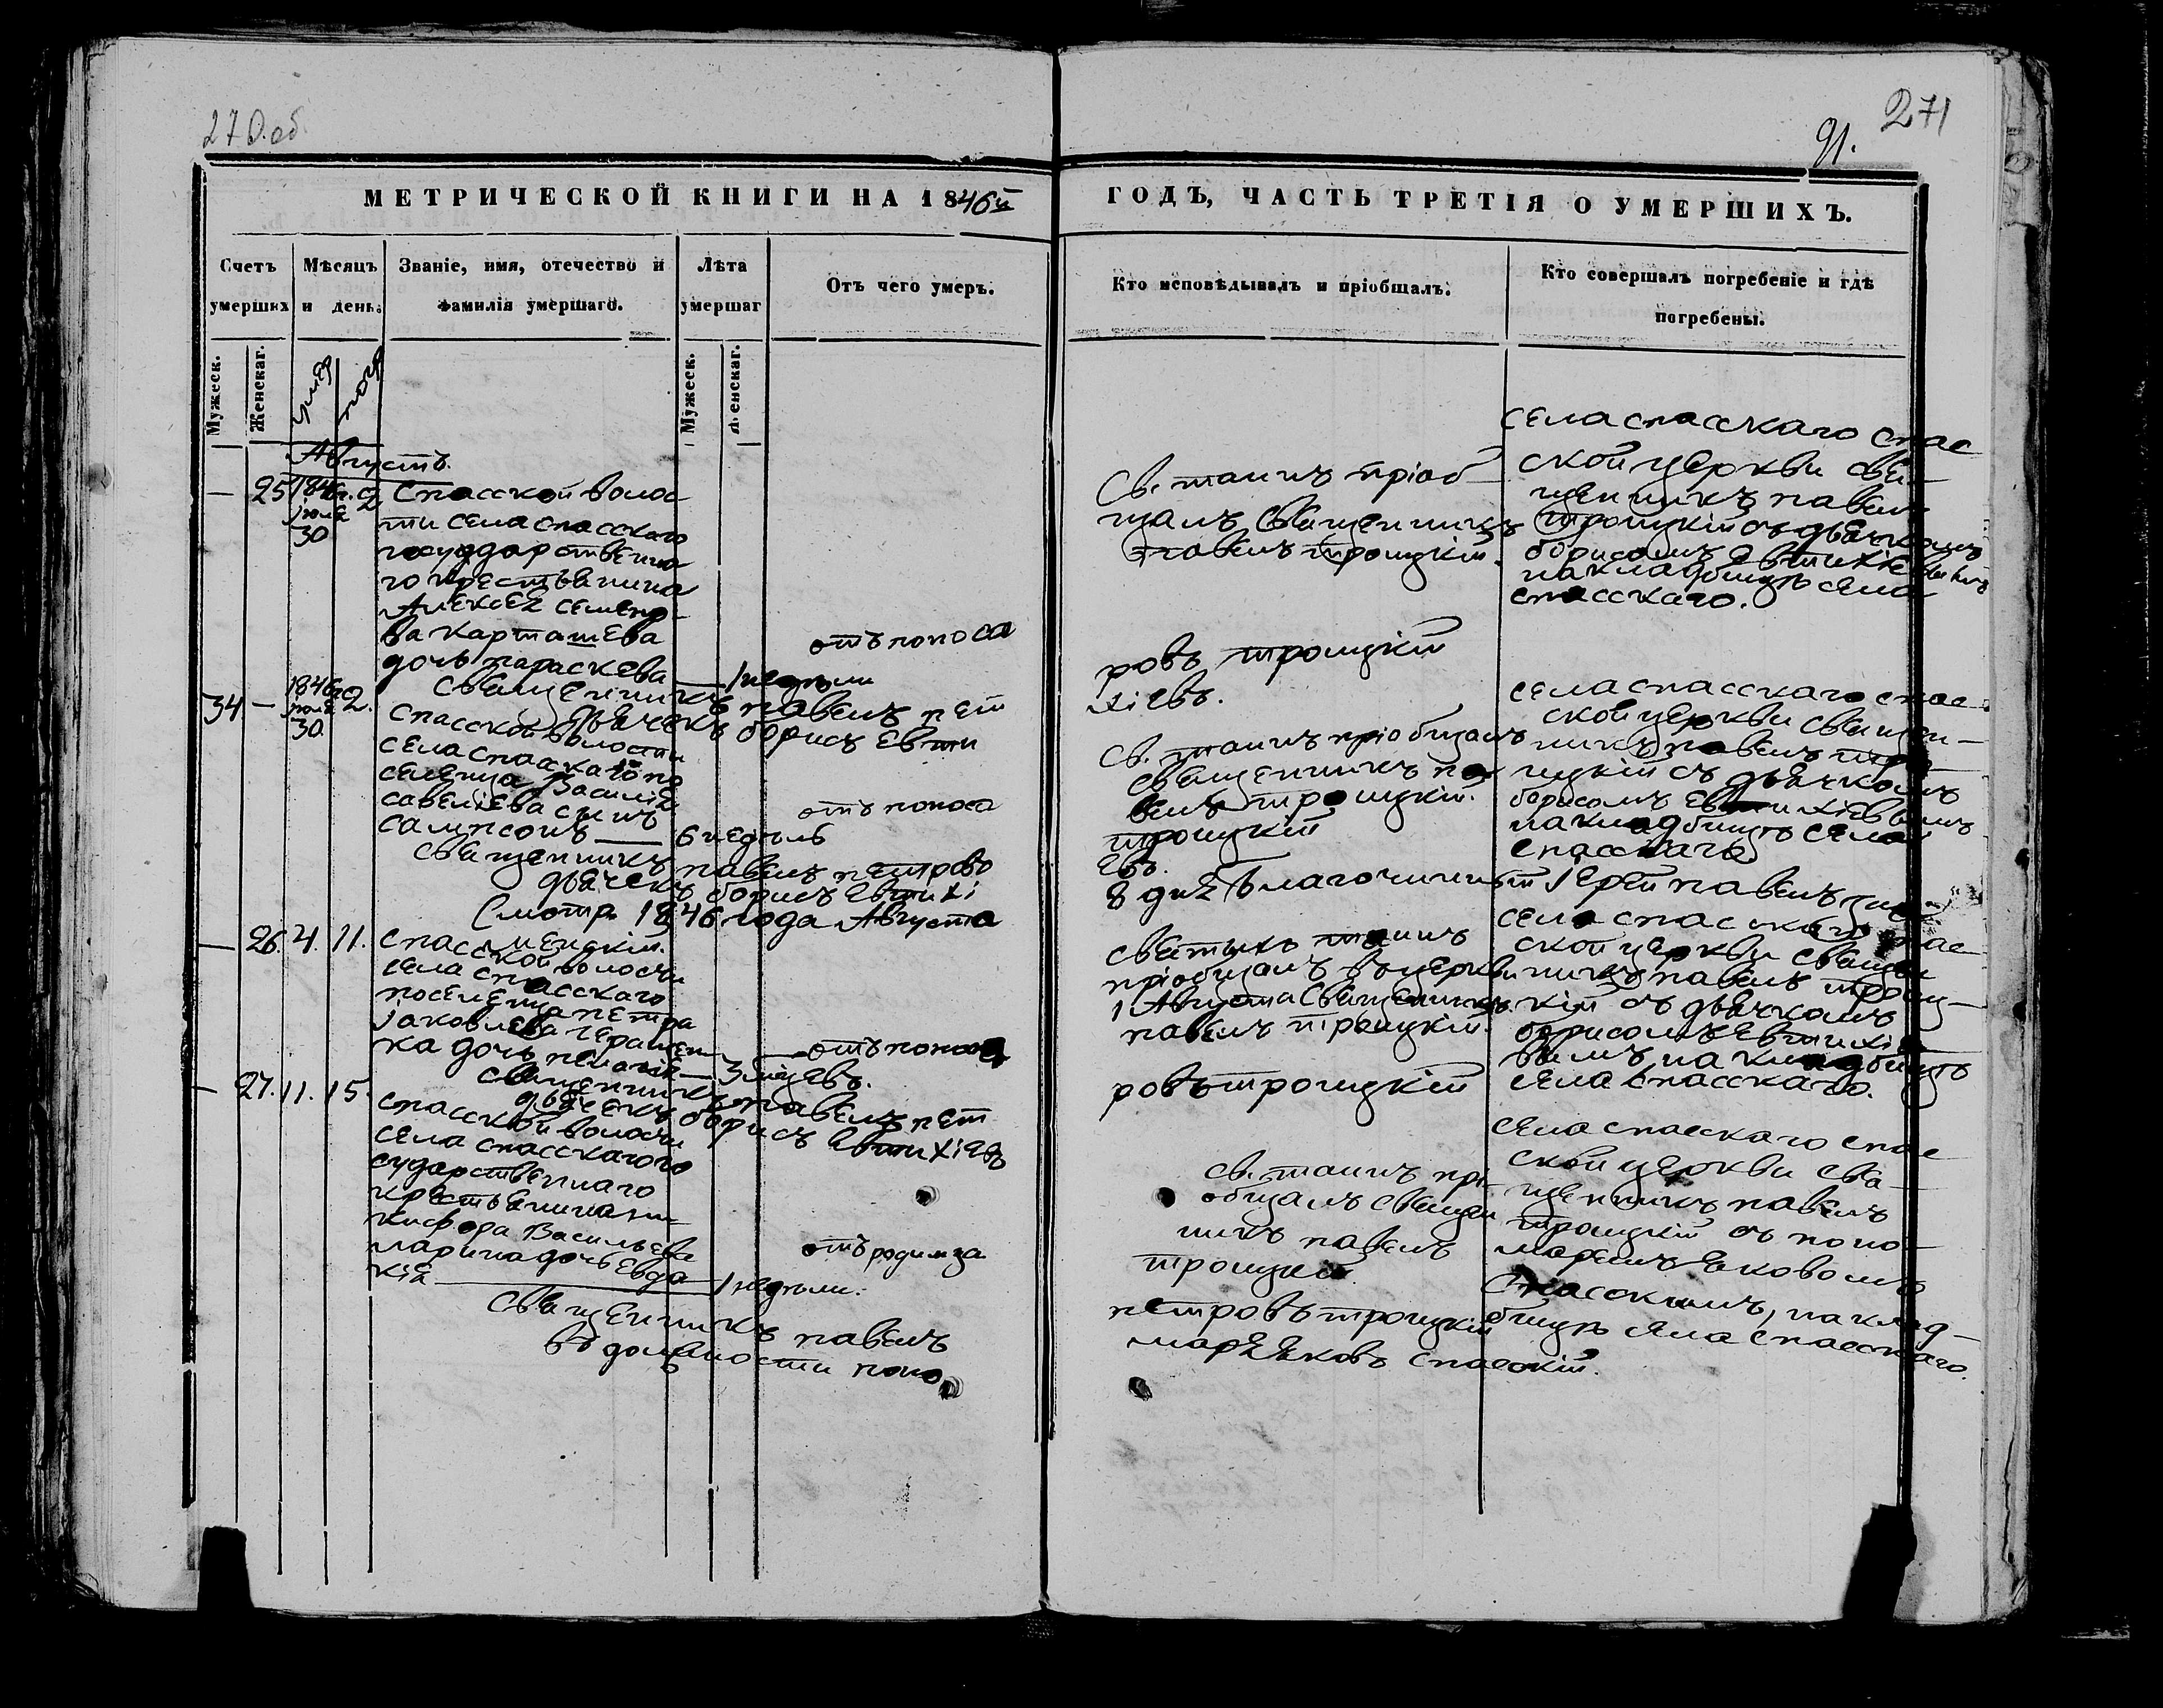 270.об.
271
91.
МЕТРИЧЕСКОЙ КНИГИ НА 1846й
ГОДЪ, ЧАСТЬ ТРЕТІЯ О УМЕРШИХЪ.
Счетъ умерших
Мѣсяцъ и день.
Званіе, имя, отечество и фамилія умершаго.
Лѣта умершаг
Отъ чего умеръ.
Кто исповѣдывалъ и пріобщалъ.
Кто совершалъ погребеніе и гдѣ погребены.
Мужеск.
Женскаг.
умер
погр
Мужеск.
Женскаг.
Августъ.
— 25 1846г. 2
іюля
30
Спасской волос
ти села спасскаго
государственна
го крестьянина
Алексея семено-
ва карташева
дочь параскева — 1 недели
отъ поноса
Св. таинъ пріоб-
щалъ священникъ
павелъ троицкій.
села спасскаго спас
ской церкви свя-
щенникъ павелъ
троицкій съ дьячкомъ
борисомъ Евтихіевымъ
на кладбищѣ села
спасскаго.
священникъ павелъ пет
ровъ троицкій
дьячекъ борисъ Евти
хіевъ.
34 — 1846го 2.
іюля
30.
спасской волости
села спасскаго по
селенца Василія
савеліева сынъ
сампсонъ — 6 недель
отъ поноса
св. таинъ пріобщалъ
священникъ па
велъ троицкій.
села спасскаго спас-
ской церкви священ-
никъ павелъ трои
ицкій съ дьячкомъ
борисомъ Евтихіевымъ
на кладбищѣ села
спасскаго
священникъ павелъ петровъ
троицкій
дьячекъ борисъ Евтихі
евъ.
Смотр. 1846 года Августа
8 дня Благочинный іерей павелъ
менскій.
— 26. 4. 11.
спасской волости
села спасскаго
поселенца петра
іаковлева
ка дочь — 3 мѣсецевъ.
отъ поноса
святыхъ таинъ
пріобщалъ въ церкви
1 Августа Священникъ
павелъ троицкій.
села спасскаго спас
ской церкви священ
никъ павелъ троиц-
кій съ дьячкомъ
борисомъ Евтихіе
вымъ на кладбищѣ
села спасскаго.
священникъ павелъ пет
ровъ троицкій
дьячекъ борисъ Евтихіевъ
— 27. 11. 15.
спасской волости
села спасскаго го
сударственнаго
крестьянина ни-
кифора Васильева
марина дочь Евдо
кія — 1 недели.
отъ родимца
св. таинъ прі-
общалъ священ
никъ павелъ
троицкій.
села спасскаго спас
ской церкви свя-
щенникъ павелъ
троицкій съ поно-
маремъ Яковомъ
Спасскимъ, на клад-
бищѣ села спасскаго.
Священникъ павелъ
петровъ троицкій
въ должности поно
марЯ Яковъ спасскій.